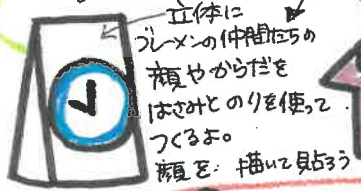 立体に
ブレーメンの仲間たちの
顔やからだを
はさみとのりを使って
つくるよ。
顔を描いて貼ろう